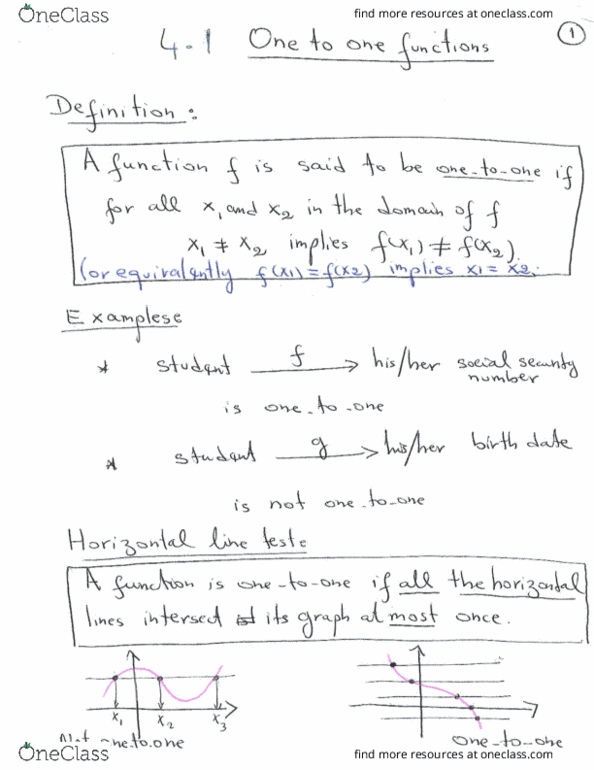 OneClass
find more resources at oneclass.com
4.1 One to one functions
1
Definition:
A function f is said to be one-to-one if
for all x1 and x2 in the domain of f
x1 ≠ x2 implies f(x1) ≠ f(x2).
(or equivalently f(x1) = f(x2) implies x1 = x2.
Examplese
* student f his/her social security
number
is one-to-one
* student g his/her birth date
is not one-to-one
Horizontal line teste
A function is one-to-one if all the horizontal
lines intersed its graph at most once.
x1 x2 x3
Not one-to-one
one-to-one
OneClass
find more resources at oneclass.com